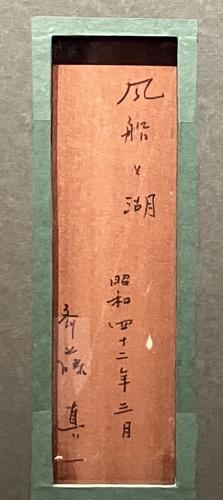 風船と湖
昭和四十二年三月
斎藤真一